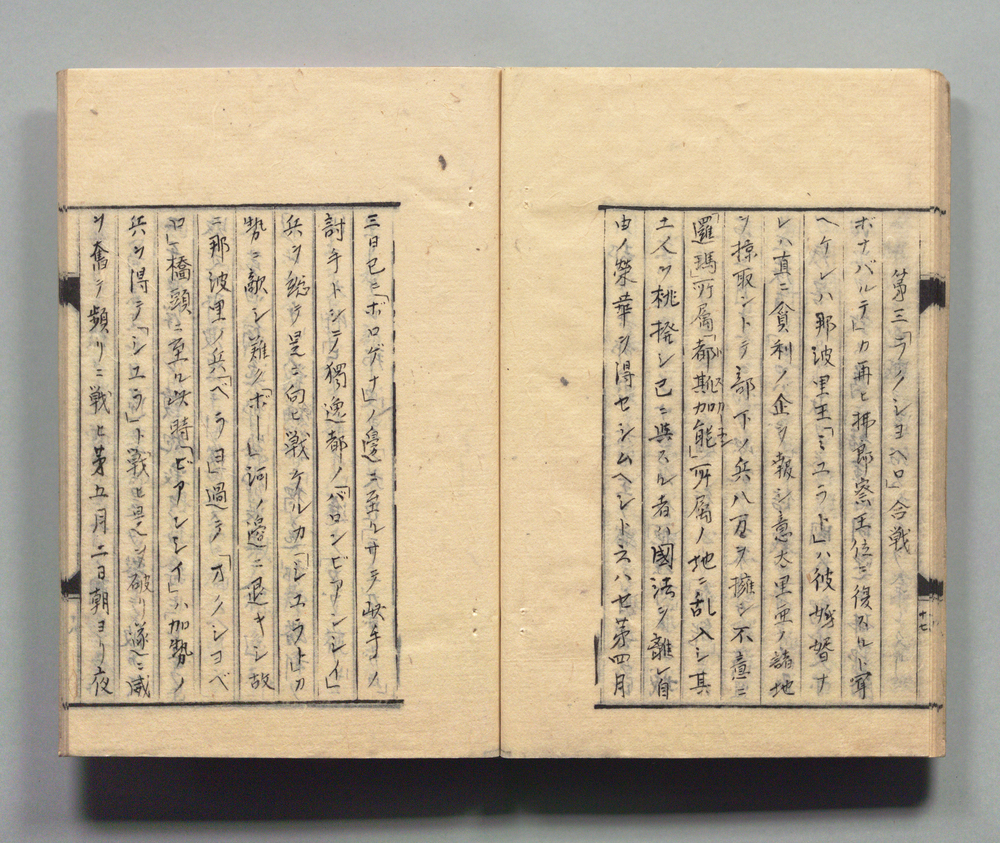 第三「ラノシヨヘロ」合戦
ボナバルテ」カ再ヒ拂郎察王位ニ復スルト寕
ヘケンハ那波里王「ミユラト」ハ彼妹婿ナ
レハ真ニ貪利ノ企ヲ報シ意太里亜ノ諸地
ヲ掠取ントテ部下ノ兵八万ヲ擁シ不意ニ
「邏瑪」所属「都斯加能」所属ノ地ニ乱入シ其
土人ヲ桃撥シ已ニ與スル者ハ國法ヲ離レ自
由ノ榮華ヲ得セシムヘシト云ハセ第四月
三日已ニ「ボロゲナ」ノ邊ニ至ル「サテ此手ノ
討手トシテ獨逸都ノ「バロンビアンシイ」
兵ヲ総テ是ニ向ヒ戦ケルカ「ミユラ」ト止カ
勢ニ敵シ難ク「ボー」レ河ノ邊ニ退キシ故
ニ那波里ノ兵「ヘラヨ」過テ「オクシヨベ
ロ」橋頭ニ至ル此時「ビアンシイ」ハ加勢ノ
兵ヲ得テ「シユラ」ト戦ヒ是ヲ破リ遂ニ威
ヲ奮テ頻リニ戦ヒ第五月二日朝ヨリ夜
十七